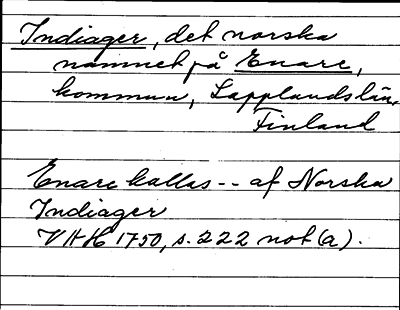 Indiager, det norska
namnet på Enare,
kommun, Lapplands län,
Finland
Enare kallas -- af Norska
Indiager
VAH 1750, s. 222 not (a).